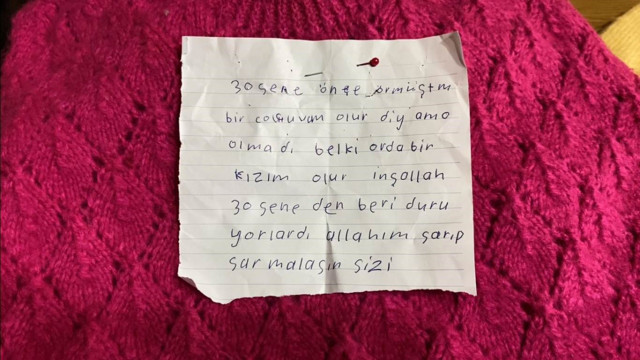 30 sene önçe örmüştm
bir çocuuvum olur diy ama
olmadı belki orda bir
kızım olur inşallah
30 sene den beri duru
yorlardı allahım sarıp
sarmalasın sizi